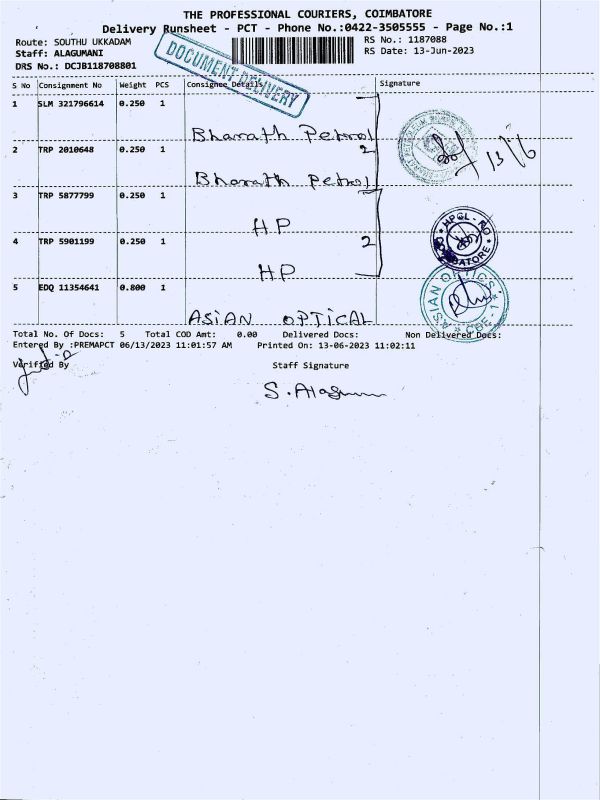 THE PROFESSIONAL COURIERS, COIMBATORE
Delivery Runsheet - PCT - Phone No.:0422-3505555 - Page No.:1
Route: SOUTHU UKKADAM RS No.: 1187088
Staff: ALAGUMANI RS Date: 13-Jun-2023
DRS No.: DCJB118708801
DOCUMENT DELIVERY
S No Consignment No Weight PCS Consignee Details Signature
1 SLM 321796614 0.250 1
Bharath Petrol
2 TRP 2010648 0.250 1 2
Bharath Petrol
13/6
3 TRP 5877799 0.250 1
HP
HPCL - RO
4 TRP 5901199 0.250 1 2
HP
5 EDQ 11354641 0.800 1
ASIAN OPTICAL
ASIAN OPTICS
CBE - 1
Total No. Of Docs: 5 Total COD Amt: 0.00 Delivered Docs: Non Delivered Docs:
Entered By :PREMAPCT 06/13/2023 11:01:57 AM Printed On: 13-06-2023 11:02:11
Verified By Staff Signature
S. Alagu